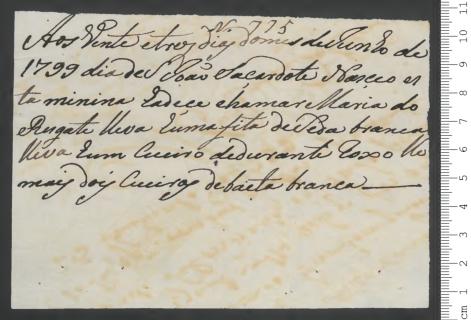 Nº 775
Aos Vinte e tres dias domes de Junho de
1799 dia de S João Sacardote Nasceo es
ta minina Eadece chamar Maria do
Rugate lleva Euma fita de Seda branca
lleva Eum Cueiro dedurante Roxo lle
mais dois Cueiros debaeta branca